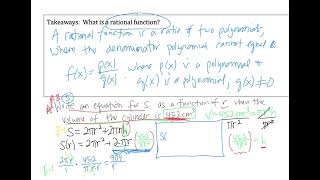 Takeaways: What is a rational function?
A rational function is a ratio of two polynomials,
where the denominator polynomial cannot equal 0
f(x) = p(x)/q(x), where p(x) is a polynomial &
q(x) is a polynomial, q(x) ≠ 0
Write an equation for S as a function of r when the
volume of the cylinder is 452 cm³
S = 2πr² + 2πrh
S(r) = 2πr² + 2πr (452/πr²)
S(
2πr/1 · 452/πr·r = 904/r
πr² πr²
(452/πr²) = h